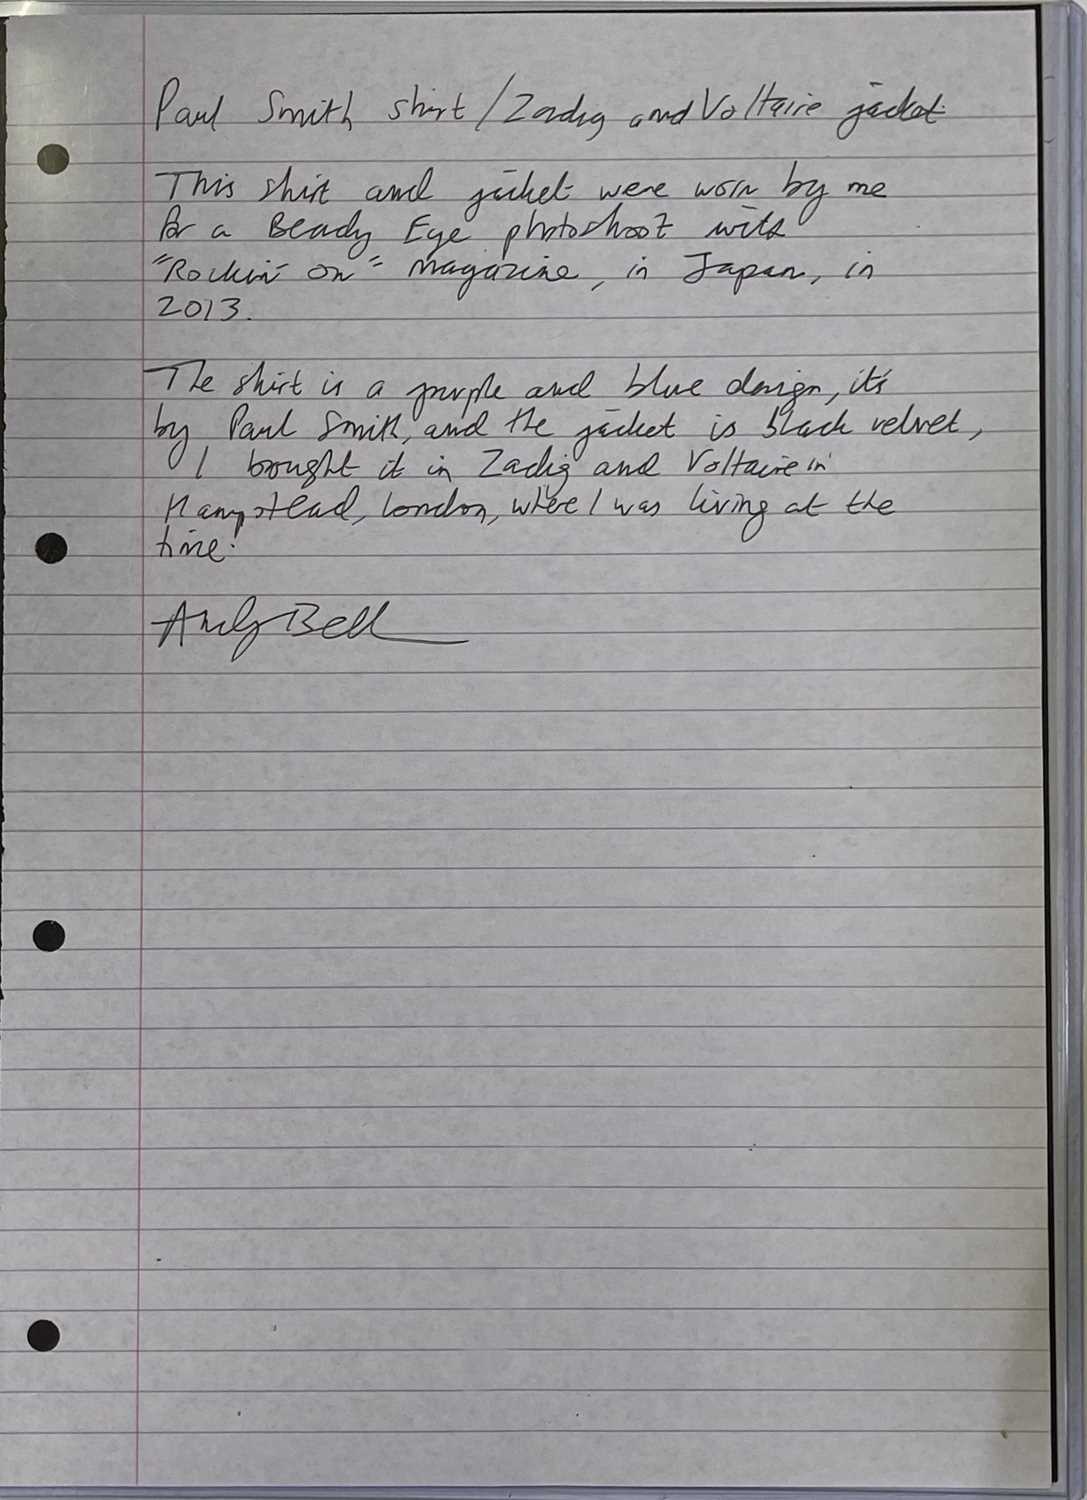 Paul Smith shirt / Zadig and Voltaire jacket
This shirt and jacket were worn by me
for a Beady Eye photoshoot with
"Rockin' on" magazine, in Japan, in
2013.
The shirt is a purple and blue design, it's
by Paul Smith, and the jacket is black velvet,
I brought it in Zadig and Voltaire in
Hampstead, London, where I was living at the
time.
Andy Bell